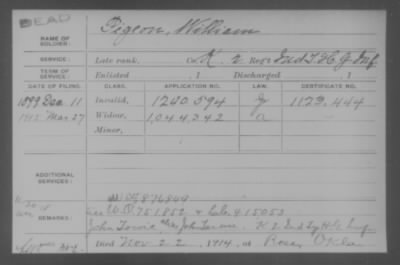 DEAD
NAME OF SOLDIER: Pigeon, William
SERVICE: Late rank, Co. K, 2 Reg't Ind T. H. G. Inf
TERM OF SERVICE: Enlisted , 1 Discharged , 1
DATE OF FILING. CLASS. APPLICATION NO. LAW. CERTIFICATE NO.
1899 Dec 11 Invalid, 1240.594 G 1123.444
Mar 27 Widow, 1,044,242 a
Minor,
ADDITIONAL SERVICES:
876844
W.O. 751852 & Ctf. 415053
John K 2 Ind H G Inf
Died Nov. 22, 1914, at Rosa, Okla